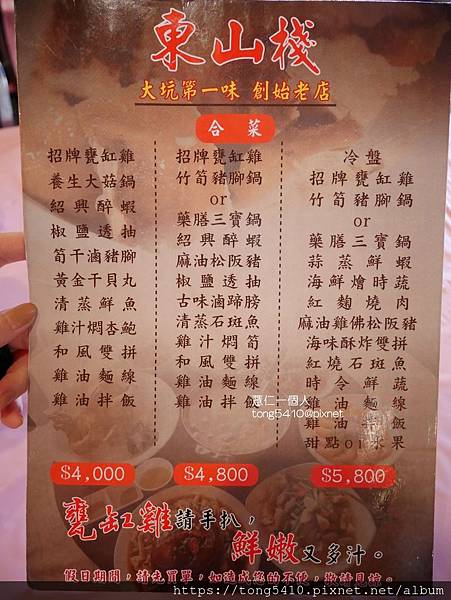 東山棧
大坑第一味 創始老店
合菜
招牌甕缸雞
養生大菇鍋
紹興醉蝦
椒鹽透抽
筍干滷豬腳
黃金干貝丸
清蒸鮮魚
雞汁燜杏鮑
和風雙拼
雞油麵線
雞油拌飯
$4,000
招牌甕缸雞
竹筍豬腳鍋
or
藥膳三寶鍋
紹興醉蝦
麻油松阪豬
椒鹽透抽
古味滷蹄膀
清蒸石斑魚
雞汁燜筍
和風雙拼
雞油麵線
雞油拌飯
$4,800
冷盤
招牌甕缸雞
竹筍豬腳鍋
or
藥膳三寶鍋
蒜蒸鮮蝦
海鮮燴時蔬
紅麴燒肉
麻油雞佛松阪豬
海味酥炸雙拼
紅燒石斑魚
時令鮮蔬
雞油麵線
雞油拌飯
甜點or水果
$5,800
薏仁一個人
tong5410@pixnet
甕缸雞請手扒，
鮮嫩又多汁。
假日期間，請先買單，如造成您的不便，敬請見諒。
https://tong5410.pixnet.net/album